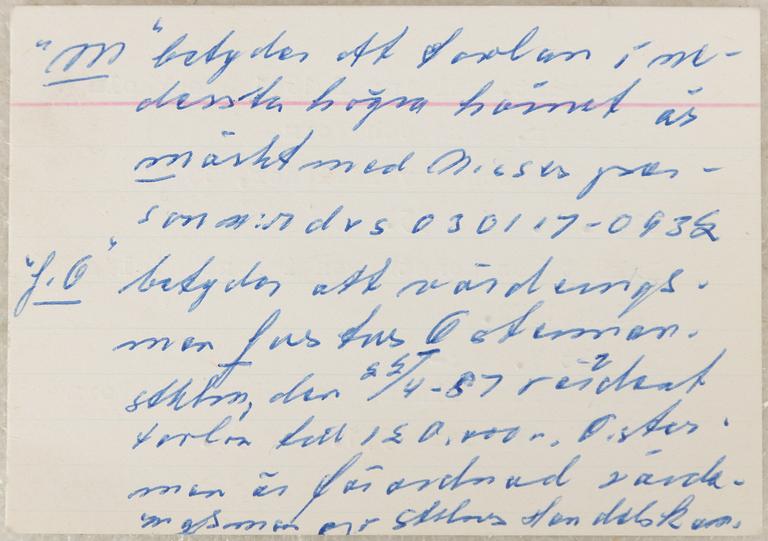 "M" betyder att tavlan i ne-
dersta högra hörnet är
märkt med Nisses per-
son n:r dvs 030117-093
"J.O" betyder att värderings-
man Justus Österman.
sthlm, den 22/4-87 värderat
tavlan till 120.000:-. Öster-
man är förordnad värde-
ringsman av sthlms Handelskam.